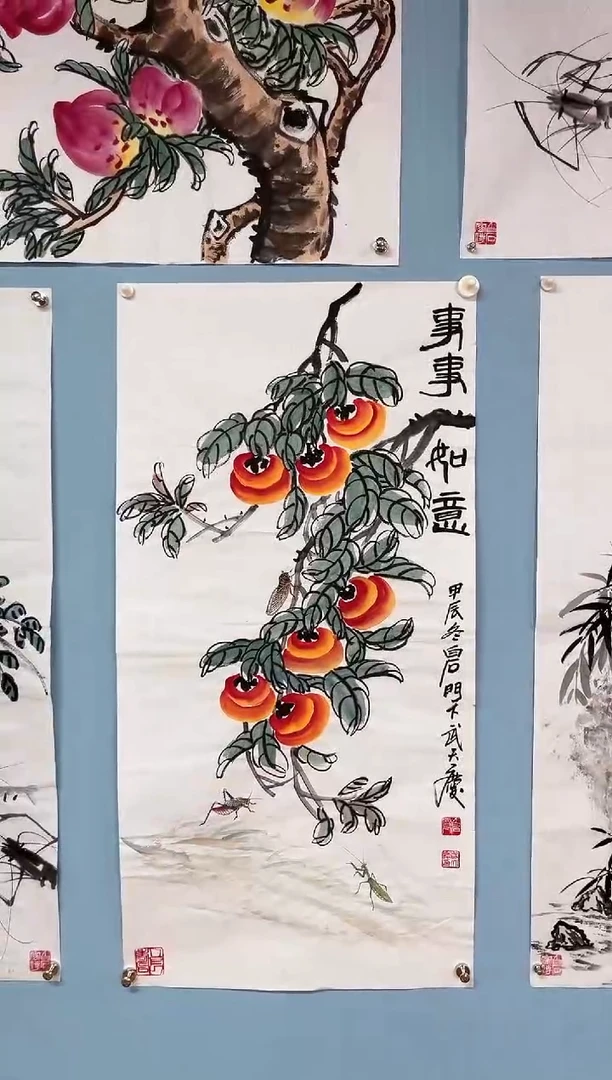 事事如意
甲辰冬白石門下武天慶